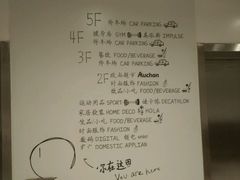 5F 停车场 CAR PARKING
4F 健身房 GYM 英派斯 IMPULSE
停车场 CAR PARKING
3F 餐饮 FOOD/BEVERAGE
停车场 CAR PARKING
2F 欧尚超市 Auchan
时尚服饰 FASHION
饮品/小吃 FOOD/BEVERAGE
运动用品 SPORT 迪卡侬 DECATHLON
家居软装 HOME DECO HOLA
饮品/小吃 FOOD/BEVERAGE
时尚服饰 FASHION
数码 DIGITAL
电广 DOMESTIC APPLIAN
你在这里
You are here